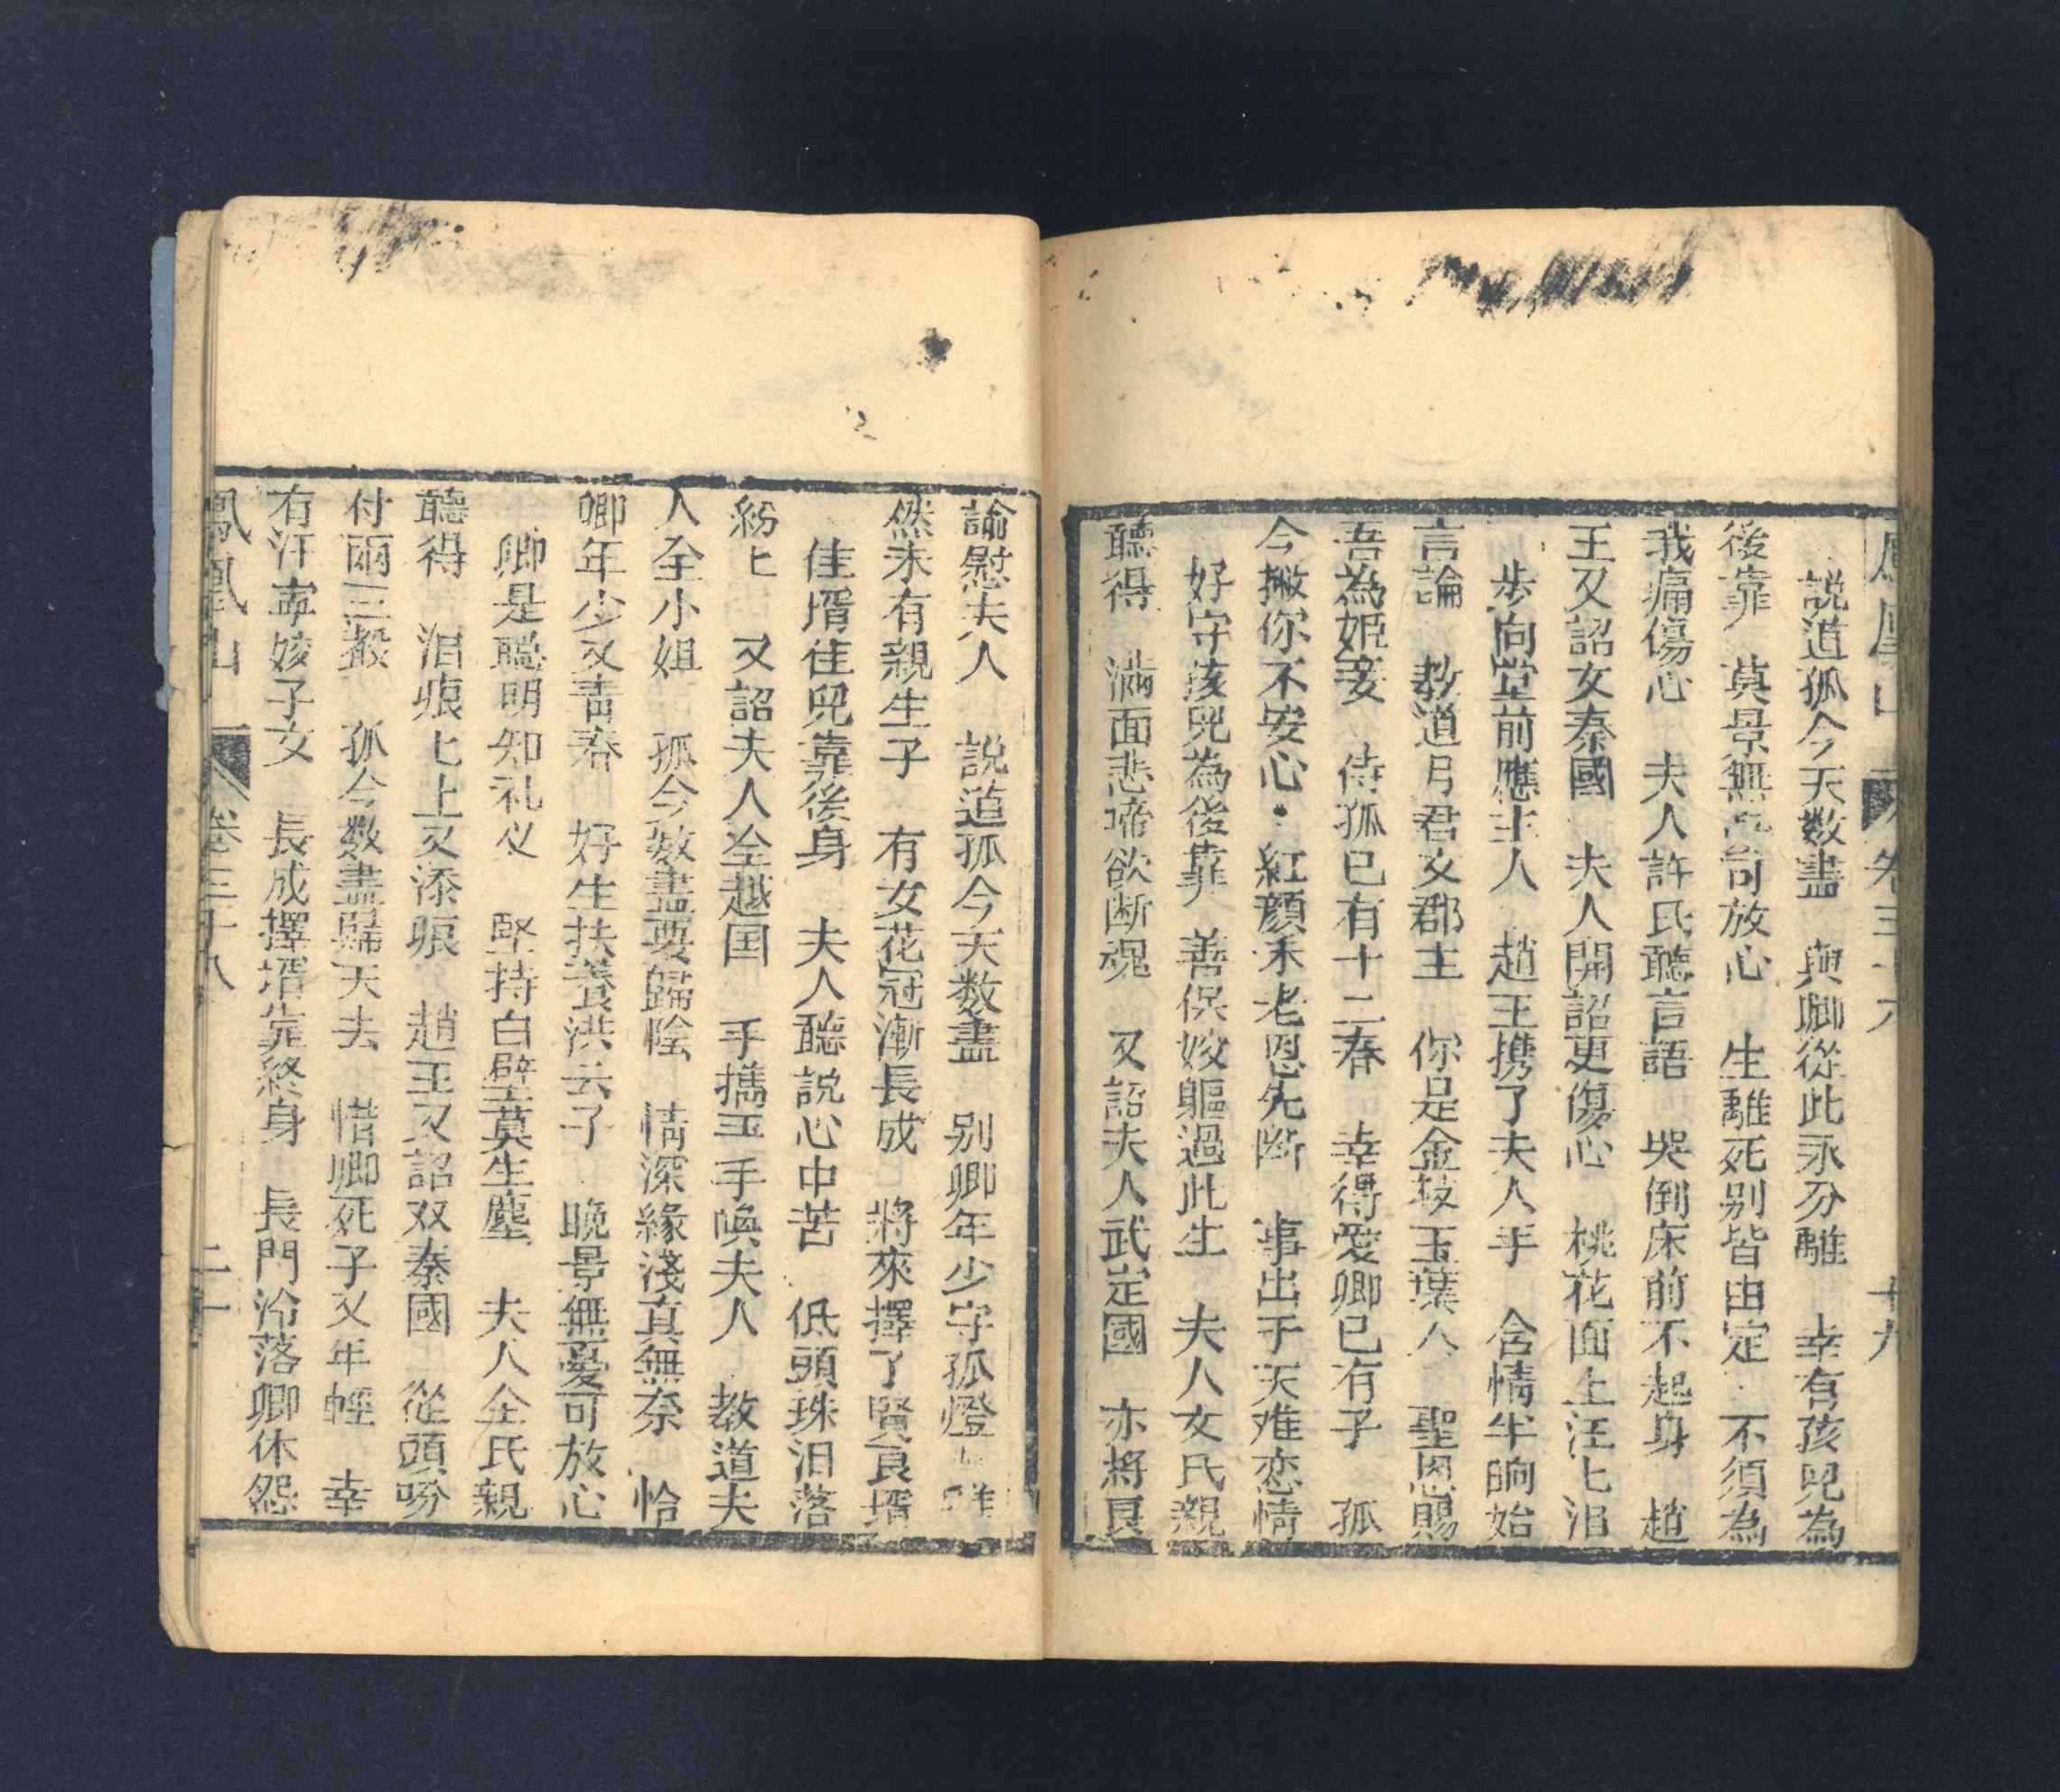 卷三十六 十九
說道孤今天数盡 與卿從此永分離 幸有孩兒為
後靠 莫景無 可放心 生離死别皆由定 不須為
我痛傷心 夫人許氏聽言語 哭倒床前不起身 趙
王又詔女秦國 夫人開詔更傷心 桃花面上汪匕泪
步向堂前應主人 趙王携了夫人手 含情半晌始
言論 教道 君女郡主 你是金枝玉葉人 聖恩賜
吾為姬妾 侍孤已有十二春 幸得愛卿已有子 孤
今撇你不安心 紅顏未老恩先断 事出于天难恋情
好守孩兒為後靠 善保姣軀過此生 夫人文氏親
聽得 满面悲啼欲断魂 又詔夫人武定國 亦將良
諭慰夫人 說道孤今天数盡 别卿年少守孤燈 雖
然未有親生子 有女花冠漸長成 將來擇了賢良壻
佳壻徃兒靠後身 夫人聽說心中苦 低頭珠泪落
紛匕 又詔夫人全越国 手擕玉手喚夫人 教道夫
人全小姐 孤今数盡要歸陰 情深緣淺真無奈 恰
卿年少又青春 好生扶養洪云子 晚景無憂可放心
卿是聪明知礼义 堅持白壁莫生塵 夫人全氏親
聽得 泪痕匕上又添痕 趙王又詔双秦國 從頭吩
付兩三聲 孤今数盡歸天去 惜卿死子又年輕 幸
有汗寧姣子女 長成擇壻靠終身 長門冷落卿休怨
鳳凰山 卷三十六 二十